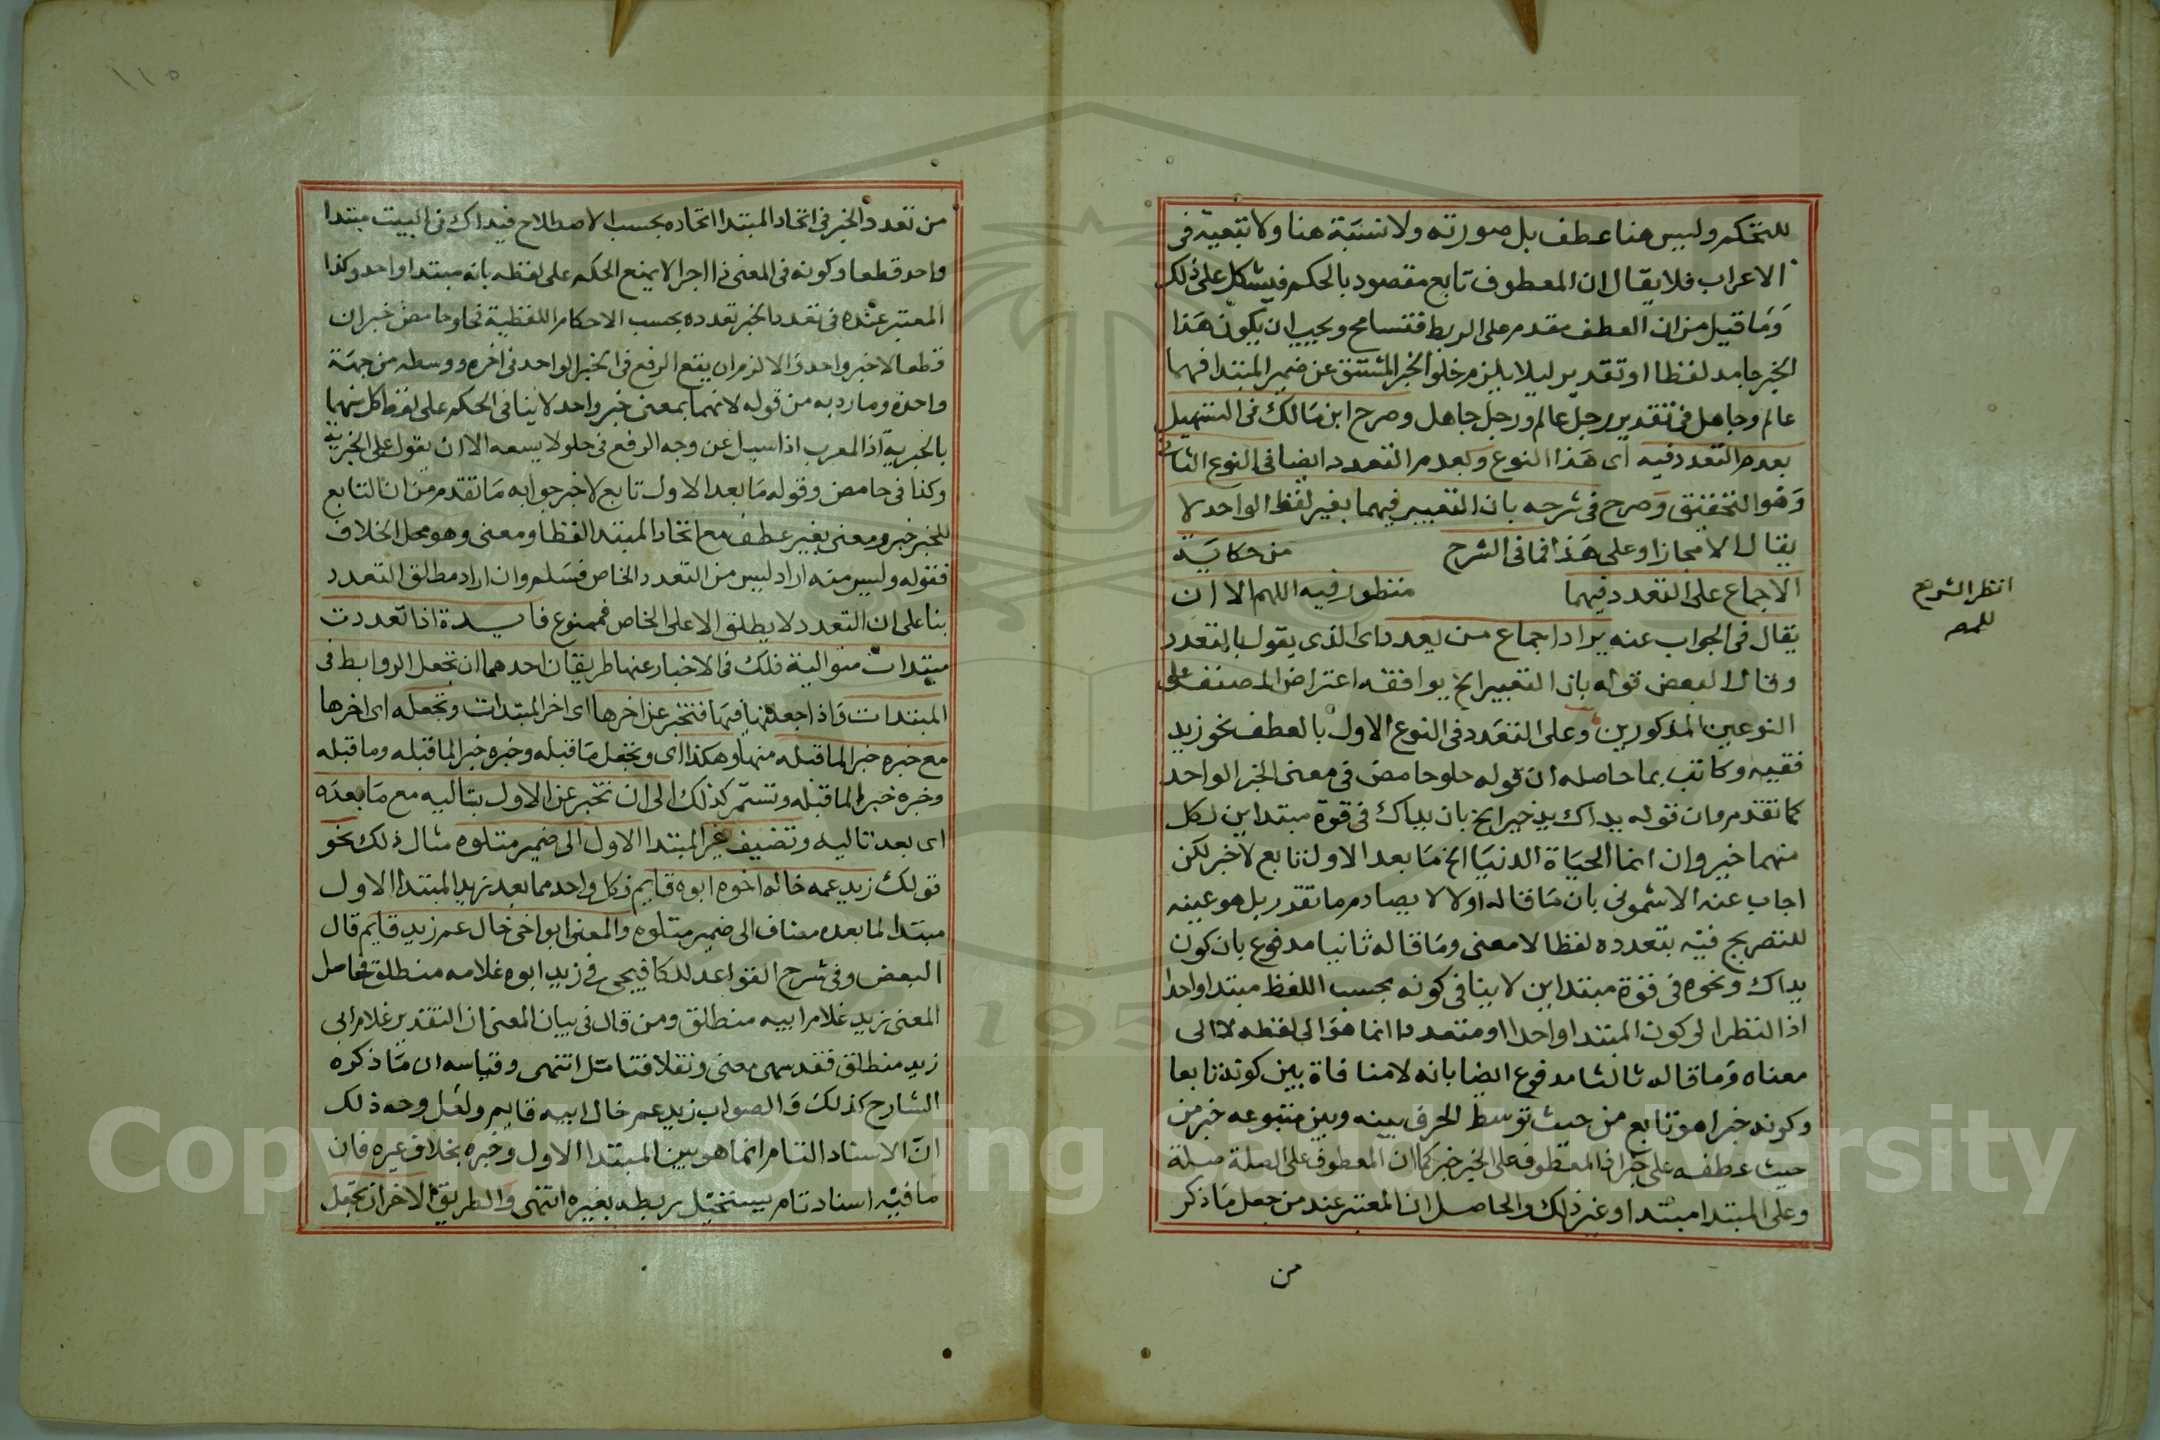 للتحكم وليس هنا عطف بل صورته ولا نسبة هنا ولا تبعية فى
الاعراب فلا يقال ان المعطوف تابع مقصود بالحكم فيشكل على ذلك
وما قيل من ان العطف مقدم على الربط فتسامح ويجب ان يكون هذا
الخبر جامد لفظا او تقدير ليلا يلزم خلو الخبر المشتق عن ضمير المبتدا فهما
عالم وجاهل فى تقدير رجل عالم ورجل جاهل وصرح ابن مالك فى التسهيل
بعدم التعدد فيه اى هذا النوع وبعدم التعدد ايضا فى النوع الثانى
وهو التحقيق وصرح فى شرحه بان التعبير فيهما بغير لفظ الواحد لا
يقال الا مجازا وعلى هذا فما فى الشرح من حكاية
الاجماع على التعدد فيهما منظور فيه اللهم الا ان
يقال فى الجواب عنه يراد اجماع من يعدد اى الذى يقول بالتعدد
وقال البعض قوله بان التعبير الخ يوافقه اعتراض المصنف على
النوعين المذكورين وعلى التعدد فى النوع الاول بالعطف نحو زيد
فقيه وكاتب بما حاصله ان قوله حلو حامض فى معنى الخبر الواحد
كما تقدم وان قوله يداك يد خيرا الخ بان يداك فى قوة مبتداين لكل
منهما خبر وان انما الحياة الدنيا الخ ما بعد الاول تابع لا خبر لكن
اجاب عنه الاشمونى بان ما قاله اولا لا يصادم ما تقدر بل هو عينه
للتصريح فيه بتعدده لفظا لا معنى وما قاله ثانيا مدفوع بان كون
يداك ونحوه فى قوة مبتداين لا ينافى كونه بحسب اللفظ مبتدا واحدا
اذ النظر الى كون المبتدا واحدا او متعددا انما هو الى لفظه لا الى
معناه وما قاله ثالثا مدفوع ايضا بانه لا منافاة بين كونه تابعا
وكونه خبرا هو تابع من حيث توسط الحرف بينه وبين متبوعه خبر من
حيث عطفه على خبر اذ المعطوف على الخبر خبر كما ان المعطوف على الصلة صلة
وعلى المبتدا مبتدا وغير ذلك والحاصل ان المعتبر عند من جعل ما ذكر
من
انظر الشرح
للمصـ
١١٥
من تعدد الخبر فى اتحاد المبتدا اتحاده بحسب الاصطلاح فيداك فى البيت مبتدا
واحد قطعا وكونه فى المعنى ذا اجزا لا يمنع الحكم على لفظه بانه مبتدا واحد وكذا
المعتبر عنده فى تعدد الخبر تعدده بحسب الاحكام اللفظية فحلو حامض خبران
قطعا لا خبر واحد والا لزم ان يقع الرفع فى الخبر الواحد فى اخره ووسطه من جهة
واحدة وما رد به من قوله لانهما بمعنى خبر واحد لا ينافى الحكم على لفظ كل منهما
بالخبرية اذ المعرب اذا سيل عن وجه الرفع فى حلو لا يسعه الا ان يقول على الخبرية
وكذا فى حامض وقوله ما بعد الاول تابع لا خبر جوابه ما تقدم من ان التابع
للخبر خبر ومعنى بغير عطف مع اتحاد المبتدا لفظا ومعنى وهو محل الخلاف
فقوله وليس منه اراد ليس من التعدد الخاص فمسلم وان اراد مطلق التعدد
بنا على ان التعدد لا يطلق الا على الخاص فممنوع فايدة اذا تعددت
مبتدات متوالية فلك فى الاخبار عنها طريقان احدهما ان تجعل الروابط فى
المبتدات واذا جعلتها فيها فتخبر عن اخرها اى اخر المبتدات وتجعله اى اخرها
مع خبره خبرا لما قبله منها وهكذا اى وتجعل ما قبله وخبره خبرا لما قبله وما قبله
وخبره خبرا لما قبله وتستمر كذلك الى ان تخبر عن الاول بتاليه مع ما بعده
اى بعد تاليه وتضيف غير المبتدا الاول الى ضمير متلوه مثال ذلك نحو
قولك زيد عمه خاله اخوه ابوه قايم فكل واحد مما بعد زيد المبتدا الاول
مبتدا لما بعده مضاف الى ضمير متلوه والمعنى ابو اخى خال عم زيد قايم قال
البعض وفى شرح القواعد للكافيجى فى زيد ابوه غلامه منطلق حاصل
المعنى زيد غلام ابيه منطلق ومن قال فى بيان المعنى ان التقدير غلام ابى
زيد منطلق فقد سهى معنى ونقلا فتامل انتهى وقياسه ان ما ذكره
الشارح كذلك والصواب زيد عم خال ابيه قايم ولعل وجه ذلك
ان الاسناد التام انما هو بين المبتدا الاول وخبره بخلاف غيره فان
ما فيه اسناد تام يستحيل ربطه بغيره انتهى والطريق الاخر ان تجعل
Copyright © King Saud University
1957